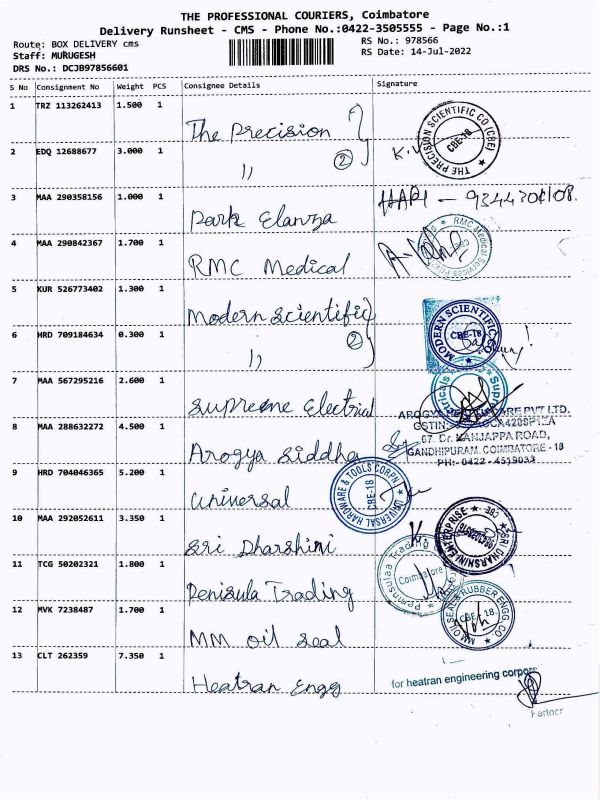 THE PROFESSIONAL COURIERS, Coimbatore
Delivery Runsheet - CMS - Phone No.:0422-3505555 - Page No.:1
Route: BOX DELIVERY cms
RS No.: 978566
Staff: MURUGESH
RS Date: 14-Jul-2022
DRS No.: DCJB97856601
S No Consignment No Weight PCS Consignee Details Signature
1 TRZ 113262413 1.500 1 The Precision
THE PRECISION SCIENTIFIC CO (CBE) CBE-18
2 EDQ 12688677 3.000 1 ,, 2
3 MAA 290358156 1.000 1 Park Elanza HARI -
4 MAA 290842367 1.700 1 RMC Medical
RMC Medical Services
5 KUR 526773402 1.300 1 Modern Scientific
MODERN SCIENTIFIC CBE-18
6 HRD 709184634 0.300 1 ,, 2
7 MAA 567295216 2.600 1 Supreme Electrical
8 MAA 288632272 4.500 1 Arogya Siddha
CARE PVT LTD.
67, Dr. NANJAPPA ROAD,
GANDHIPURAM, COIMBATORE - 18
PH:- 0422 - 4519033
9 HRD 704046365 5.200 1 Universal
UNIVERSAL HARDWARE & TOOLS CORPN CBE-18
10 MAA 292052611 3.350 1 Sri Dharshini
SRI DHARSHINI ENTERPRISE CBE
11 TCG 50202321 1.800 1 Penisula Trading
Peninsulaa Trading Coimbatore
12 MVK 7238487 1.700 1 MM oil seal
MM OIL SEAL RUBBER ENGG CO CBE-18
13 CLT 262359 7.350 1 Heatran Engg
for heatran engineering corpor
Partner